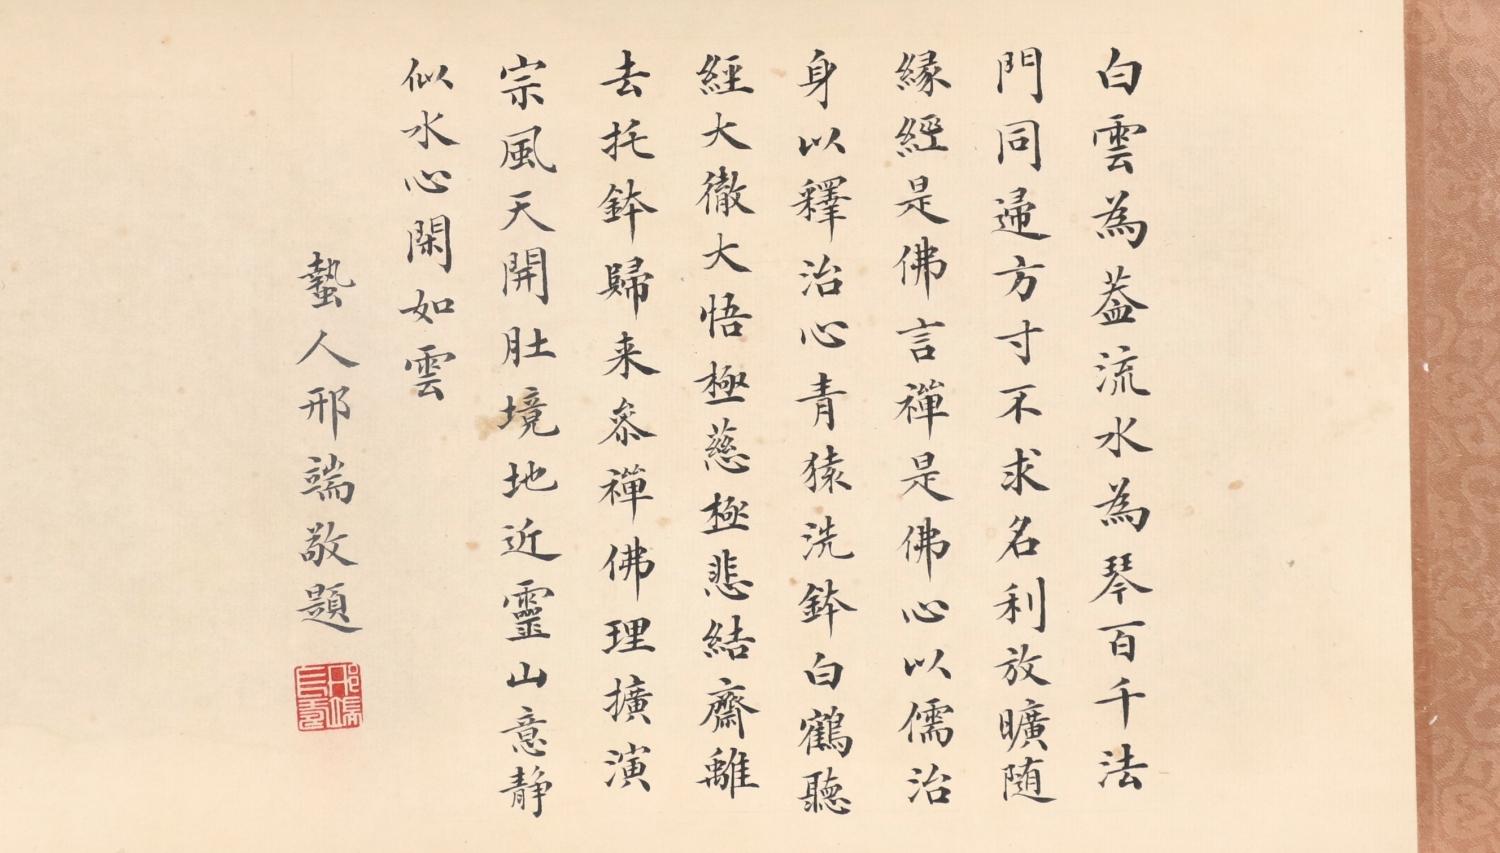 白雲為蓋流水為琴百千法
門同歸方寸不求名利放曠随
緣經是佛言禪是佛心以儒治
身以釋治心青猿洗鉢白鶴聽
經大徹大悟極慈極悲結齋離
去托鉢歸来叅禪佛理擴演
宗風天開肚境地近靈山意静
似水心閑如雲
蟄人邢端敬題
邢端